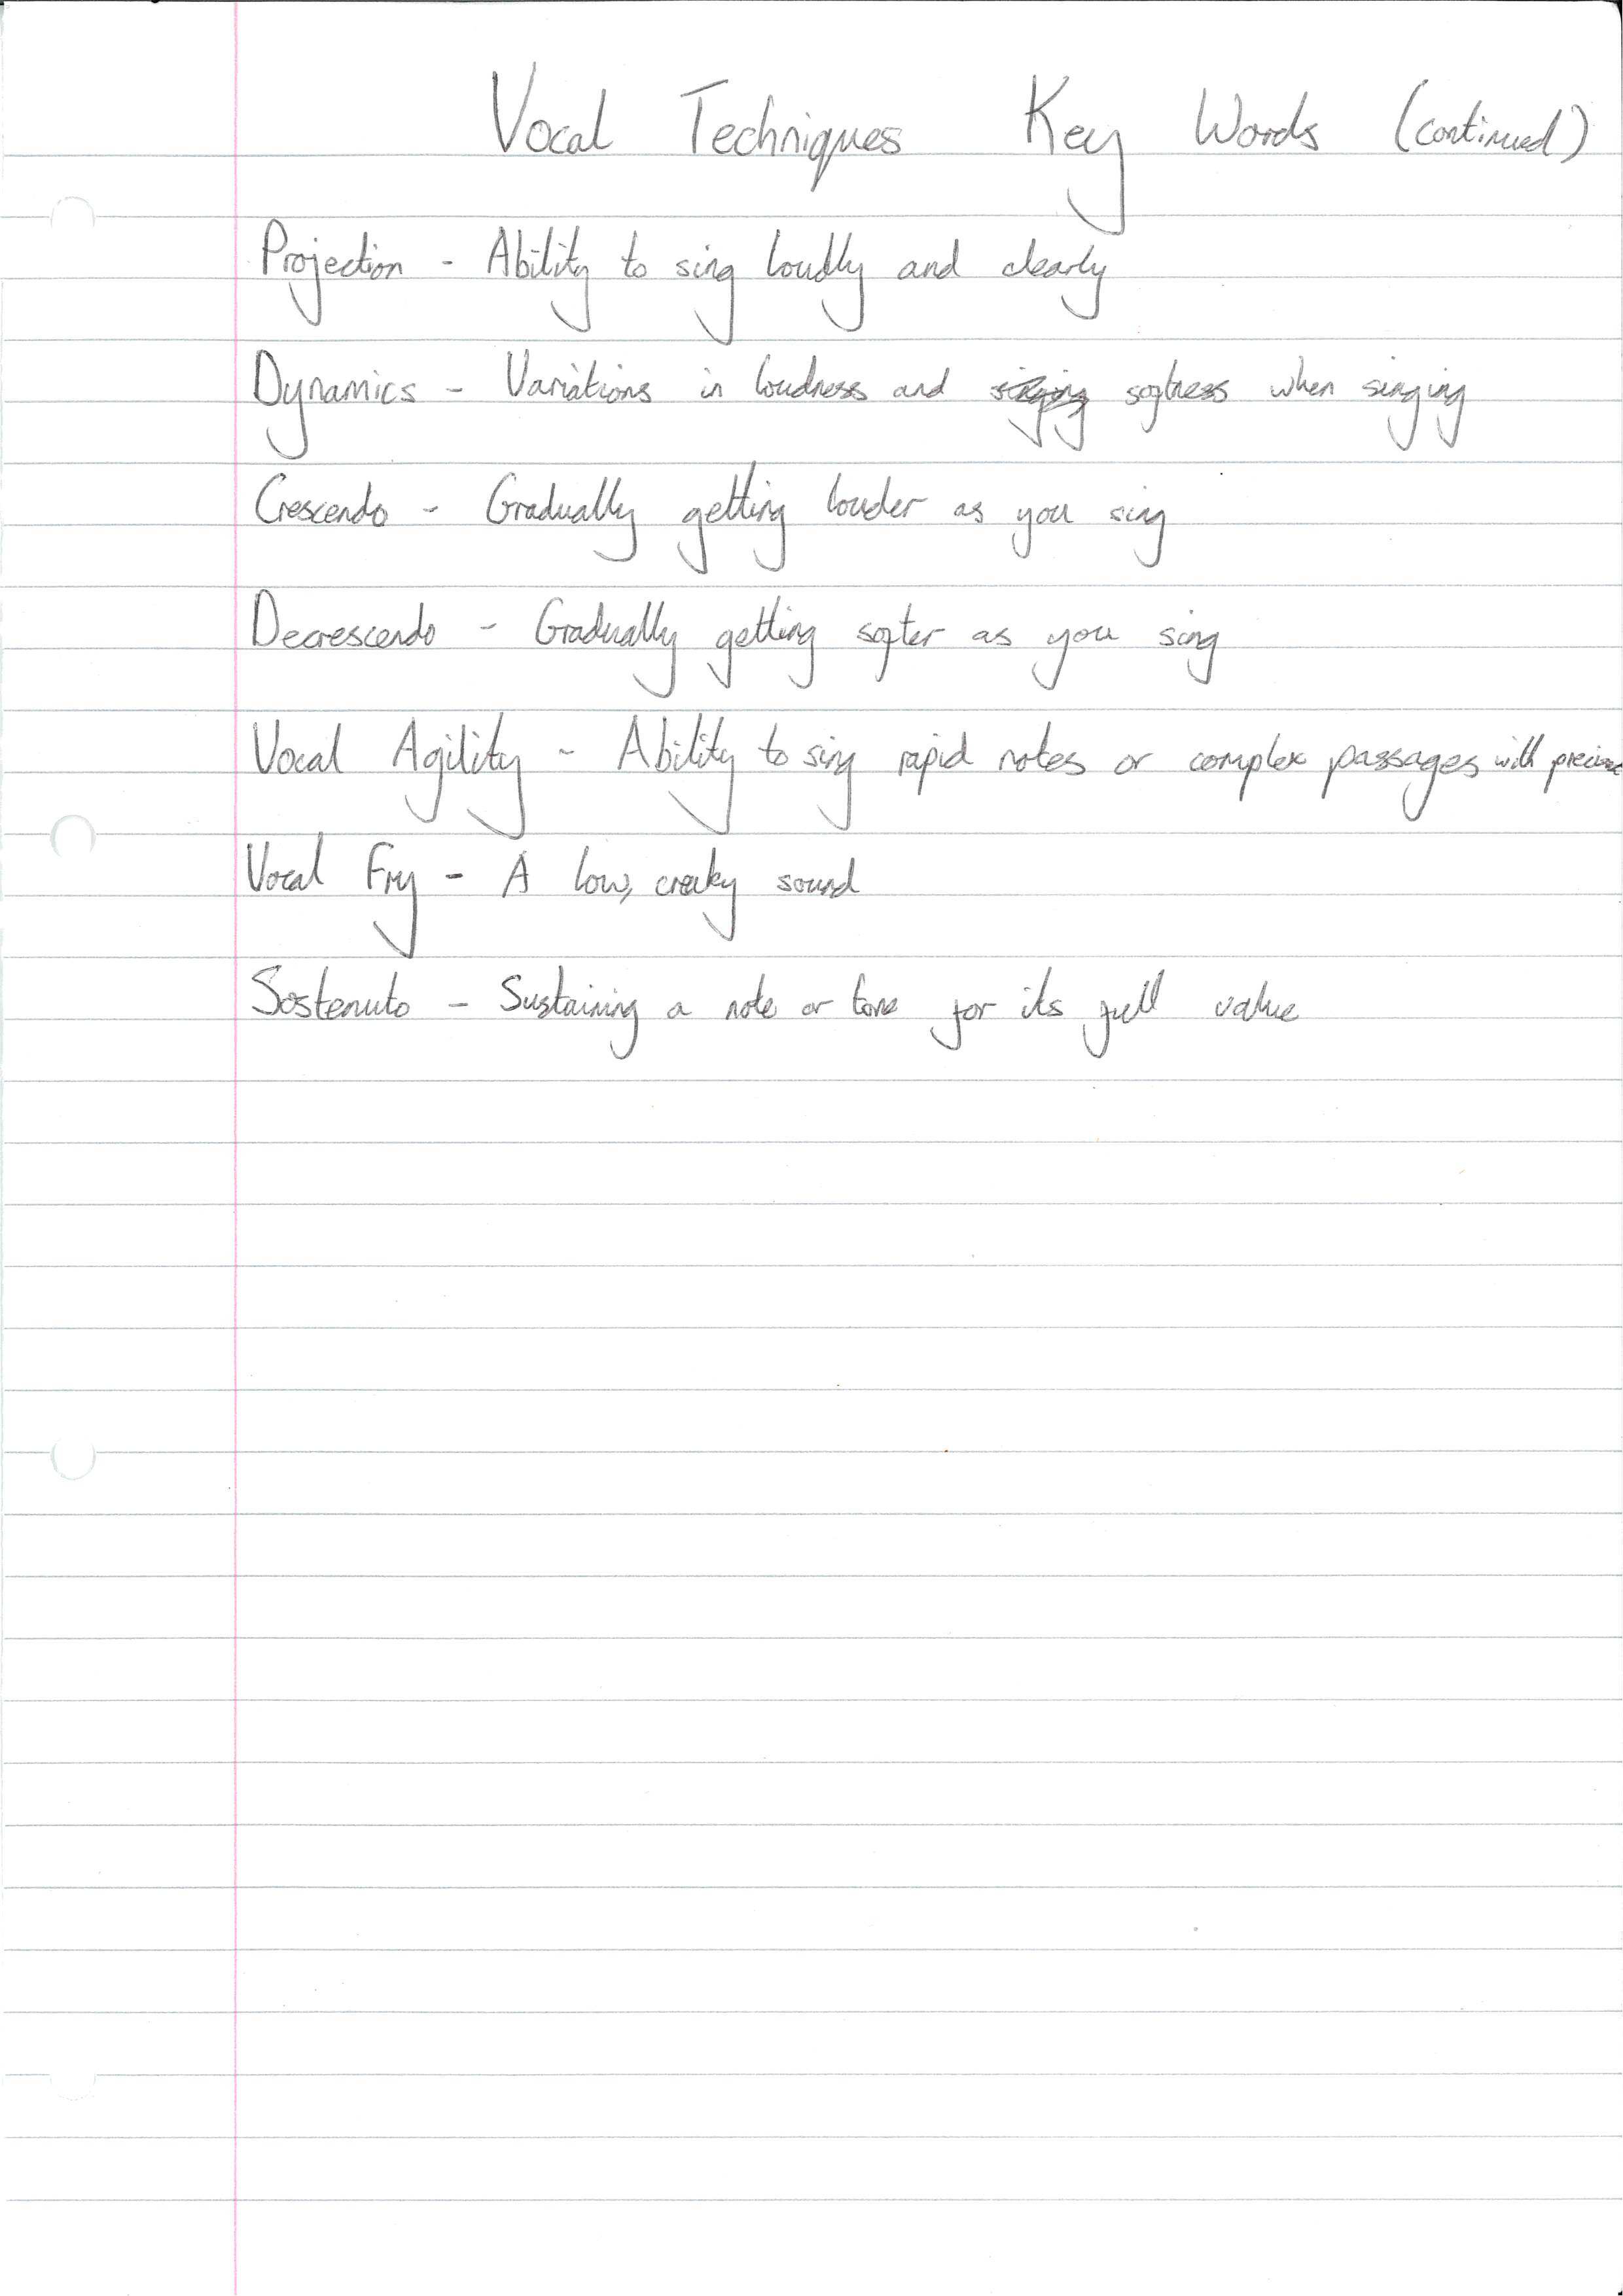 Vocal Techniques Key Words (continued)
Projection - Ability to sing loudly and clearly
Dynamics - Variations in loudness and singing softness when singing
Crescendo - Gradually getting louder as you sing
Decrescendo - Gradually getting softer as you sing
Vocal Agility - Ability to sing rapid notes or complex passages with
Vocal Fry - A low, creaky sound
Sostenuto - Sustaining a note or tone for its full value